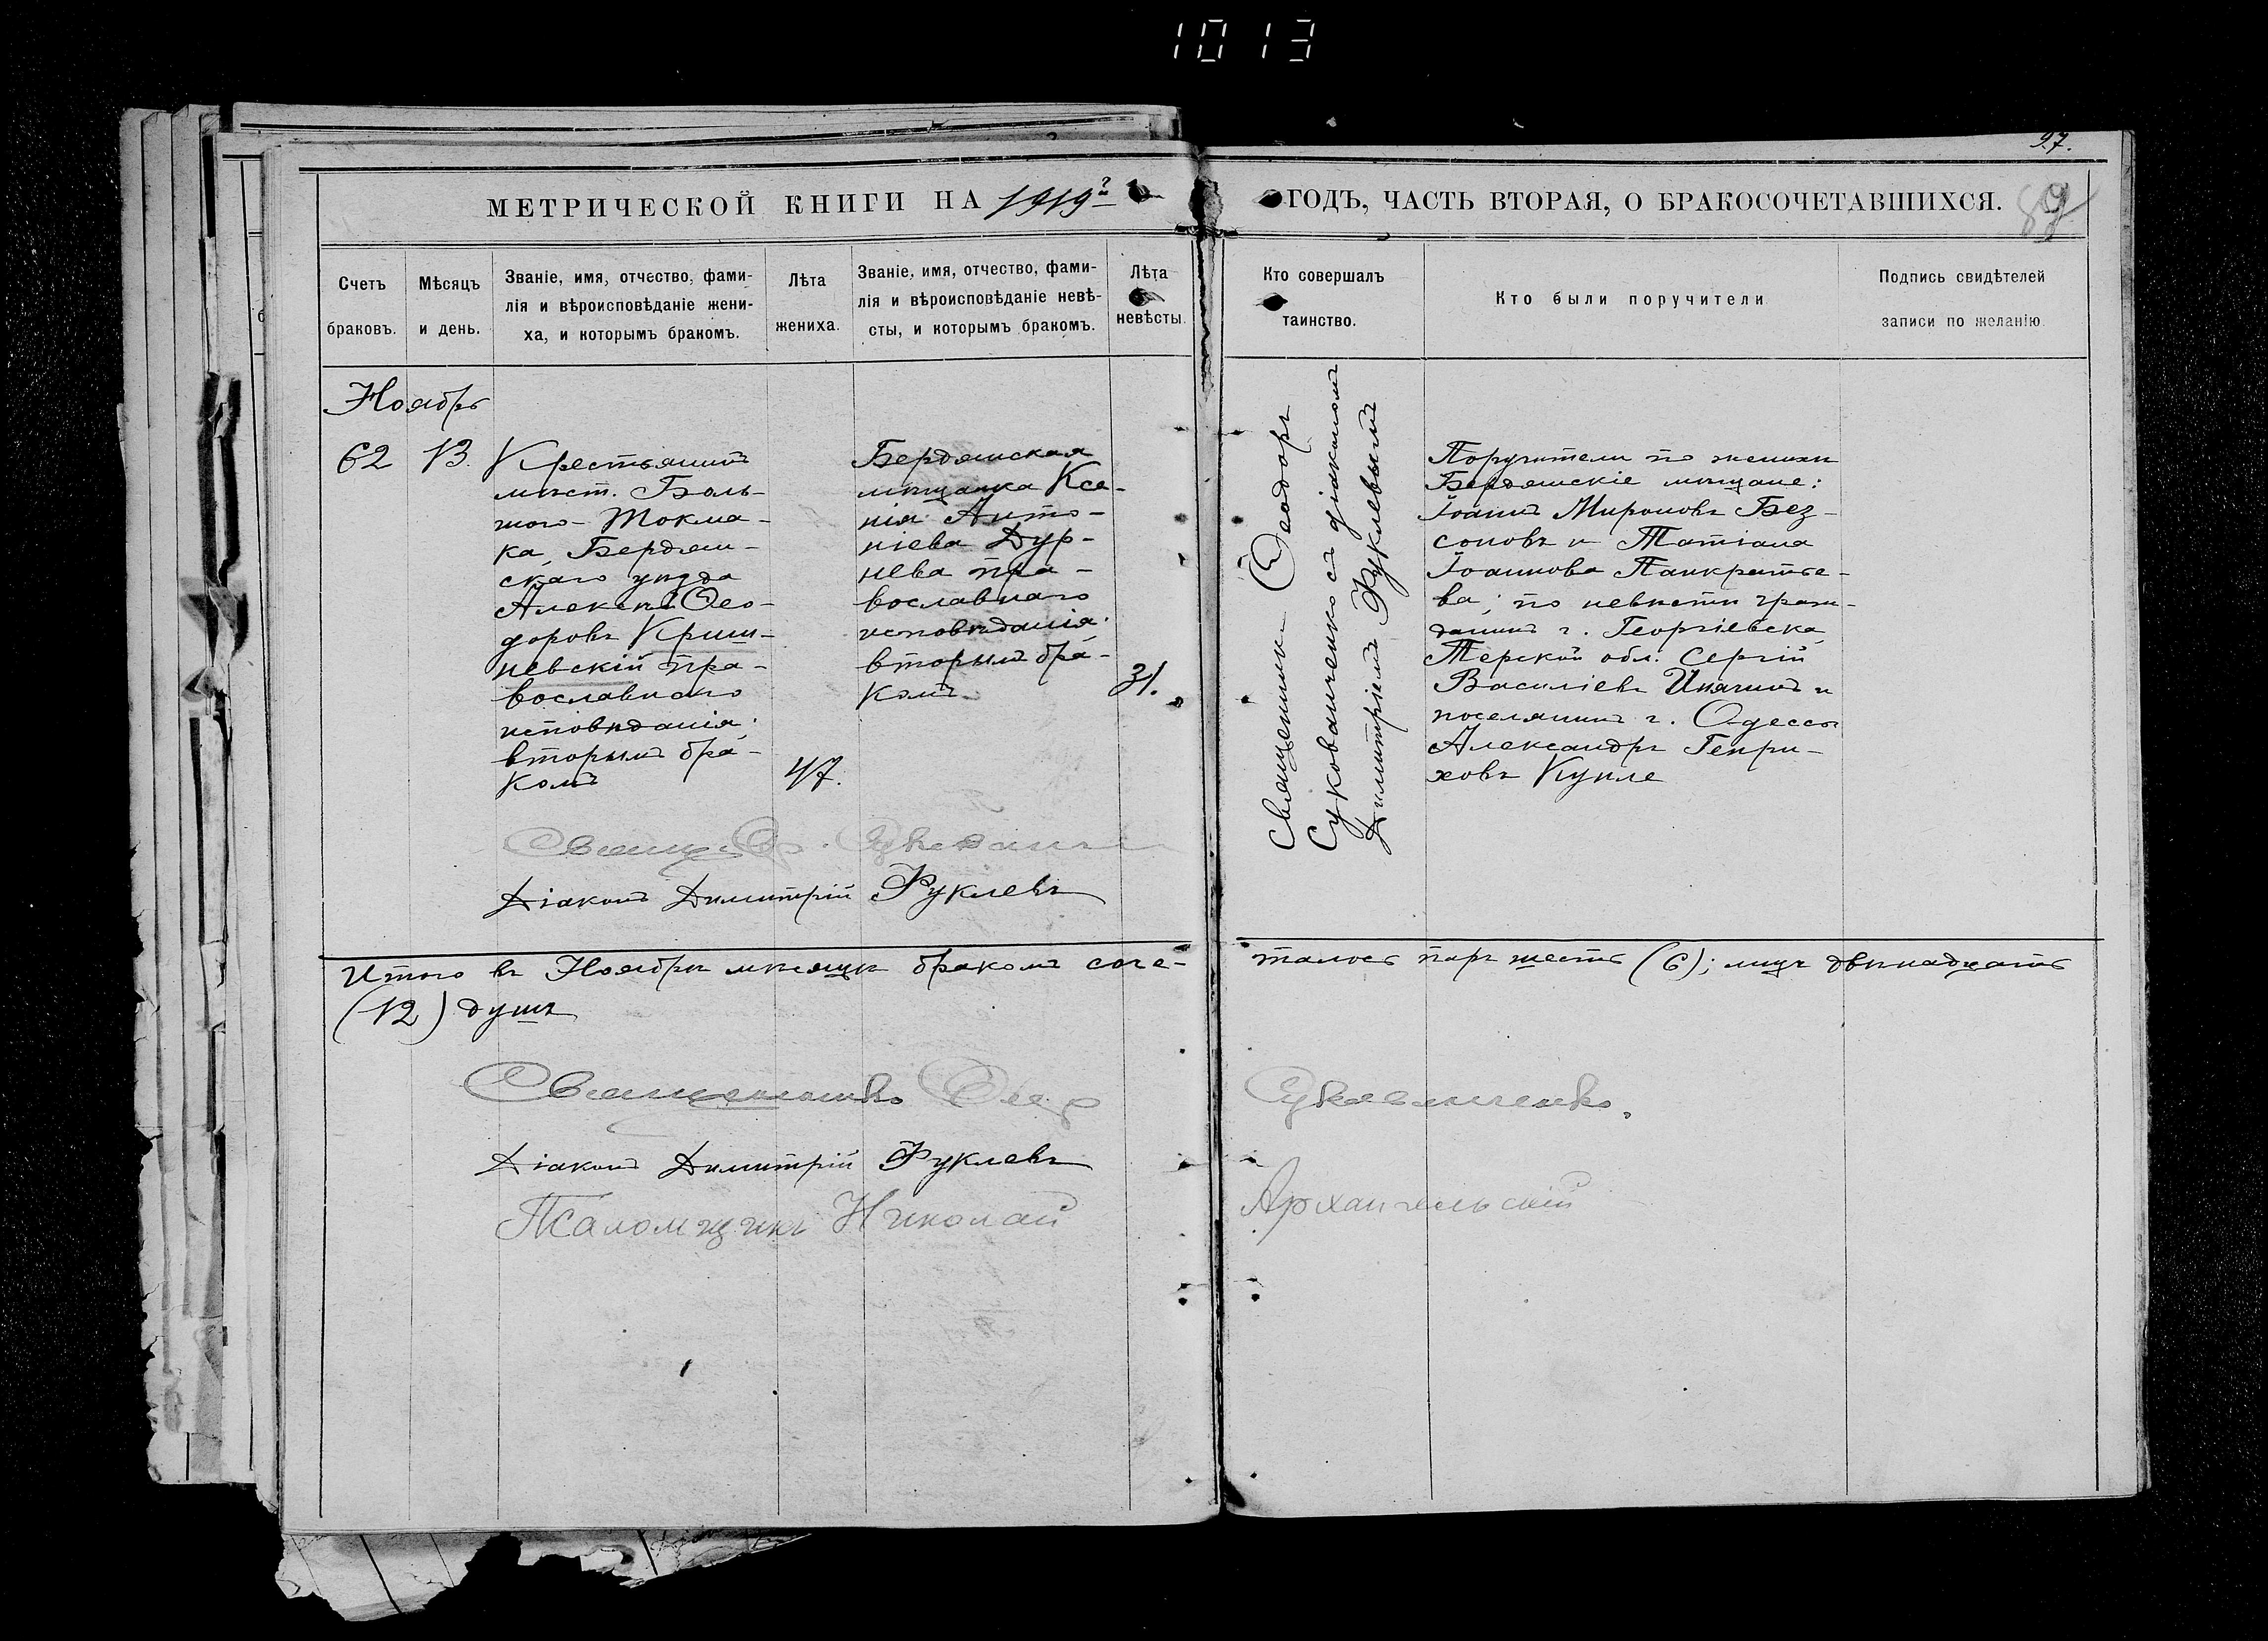 1013
97.
МЕТРИЧЕСКОЙ КНИГИ НА 1919 ГОДЪ, ЧАСТЬ ВТОРАЯ, О БРАКОСОЧЕТАВШИХСЯ.
89
Счетъ браковъ.
Мѣсяцъ и день.
Званіе, имя, отчество, фами-
лія и вѣроисповѣданіе жени-
ха, и которымъ бракомъ.
Лѣта жениха.
Званіе, имя, отчество, фами-
лія и вѣроисповѣданіе невѣ-
сты, и которымъ бракомъ.
Лѣта невѣсты.
Кто совершалъ таинство.
Кто были поручители
Подпись свидѣтелей записи по желанію.
Ноябрь
62
13.
Крестьянинъ
мѣст. Боль-
шого-Токма-
ка, Бердян-
скаго уѣзда
Алексѣй Ѳео-
доровъ Криш-
невскій пра-
вославнаго
исповѣданія;
вторымъ бра-
комъ
47.
Бердянская
мѣщанка Ксе-
нія Анто-
ніева Дур-
нева пра-
вославнаго
исповѣданія;
вторымъ бра-
комъ
31.
Священникъ Ѳеодоръ
Сукованченко съ діакономъ
Димитріемъ Фуклевымъ
Поручители по женихѣ
Бердянскіе мѣщане:
Іоаннъ Мироновъ Без-
соновъ и Татіана
Іоаннова Панкратье-
ва; по невѣстѣ граж-
данинъ г. Георгіевска,
Терской обл. Сергій
Василіевъ Инячинъ и
поселянинъ г. Одессы
Александръ Генри-
ховъ Кунле
Діаконъ Димитрій Фуклевъ
Итого въ Ноябрѣ мѣсяцѣ бракомъ соче-
талось паръ шесть (6); лицъ двѣнадцать
(12) душъ
Священникъ Ѳеод Сукованченко.
Діаконъ Димитрій Фуклевъ
Псаломщикъ Николай Архангельскій